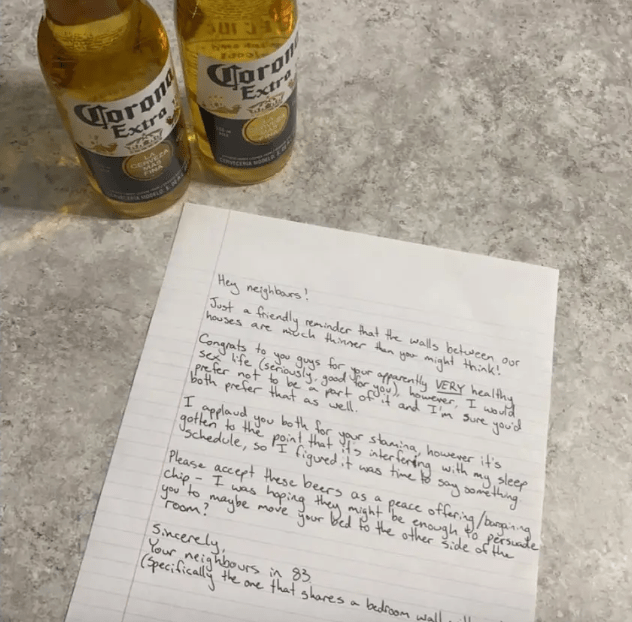 Corona
Extra
LA
CERVEZA
MAS
FINA
Corona
Extra
Hey neighbours!
Just a friendly reminder that the walls between our
houses are much thinner than you might think!
Congrats to you guys for your apparently VERY healthy
sex life (seriously, good for you), however, I would
prefer not to be a part of it and I'm sure you'd
both prefer that as well.
I applaud you both for your stamina, however it's
gotten to the point that it's interfering with my sleep
schedule, so I figured it was time to say something.
Please accept these beers as a peace offering/bargaining
chip - I was hoping they might be enough to persuade
you to maybe move your bed to the other side of the
room?
Sincerely,
Your neighbours in 83
(Specifically the one that shares a bedroom wall